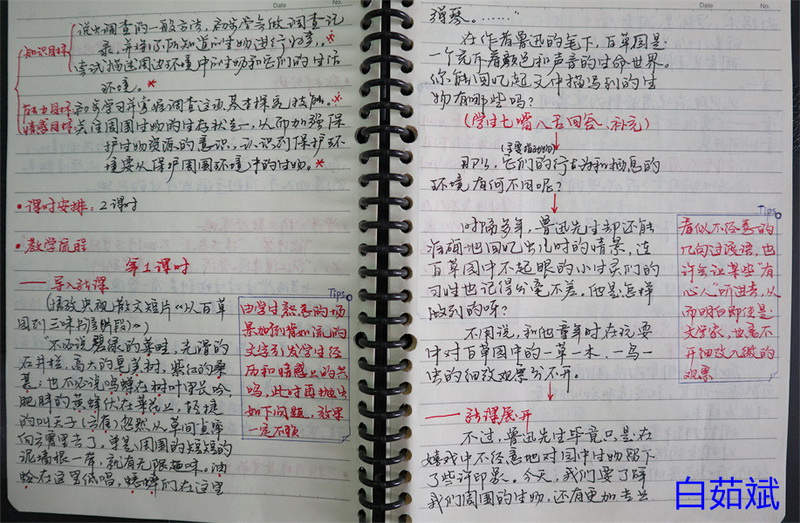 Date No.
知识目标
说出调查的一般方法，初步学会做调查记
录，并将你所知道的生物进行归类。*
尝试描述周边环境中的生物和它们的生活
环境。*
能力目标 初步学习并掌握调查这项基本探究技能。*
情感目标 关注周围生物的生存状态，从而加强保
护生物资源的意识，认识到保护环
境要从保护周围环境中的生物。*
·课时安排：2课时
·教学流程
第1课时
——导入新课
（播放央视散文短片《从百草
园到三味书屋》片段）
"不必说碧绿的菜畦，光滑的
石井栏，高大的皂荚树，紫红的桑
葚；也不必说鸣蝉在树叶里长吟，
肥胖的黄蜂伏在菜花上，轻捷
的叫天子（云雀）忽然从草间直窜
向云霄里去了，单是周围的短短的
泥墙根一带，就有无限趣味。油
蛉在这里低唱，蟋蟀们在这里
Tips
由学生熟悉的场
景如倒背如流的
文字引发学生经
历和情感上的共
鸣，此时再抛出
如下问题，效果
一定不赖
Date No.
弹琴。……"
在作者鲁迅的笔下，百草园是
一个充齐着颜色和声音的生命世界。
你能回忆起文中描写到的生
物有哪些吗？
（学生七嘴八舌回答、补充）
那么，它们的行为和栖息的
环境有何不同呢？
时隔多年，鲁迅先生却还能
准确地回忆出儿时的情景，连
百草园中不起眼的小甘员们的
习性也记得分毫不差。他是怎样
做到的呀？
不用说，和他童年时在玩耍
中对百草园中的一草一木、一鸟一
虫的细致观察分不开。
Tips
看似不经意的
几句过渡语，也
许会让某些"有
心人"听进去，从
而明白即使是
文学家，也离不
开细致入微的
观察
——新课展开
不过，鲁迅先生毕竟只是在
嬉戏中不经意地对园中生物留下
了些许印象。今天，我们要了解
我们周围的生物，还有更加专业
白茹斌